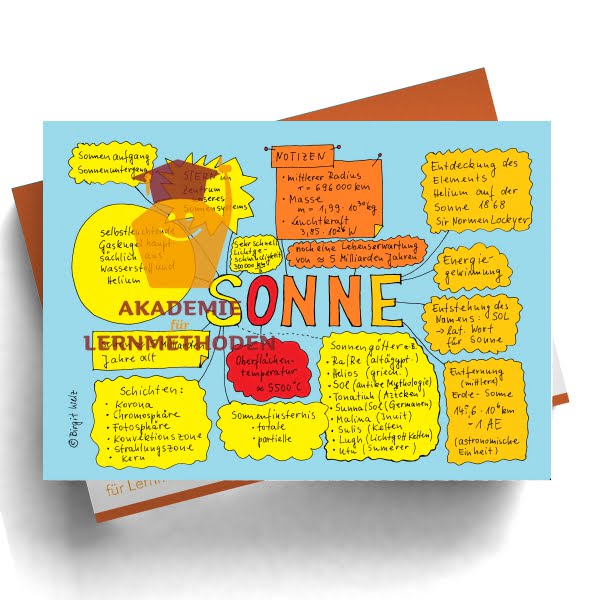 Sonnenaufgang
Sonnenuntergang
STERN im
Zentrum
unseres
Sonnensystems
NOTIZEN
• mittlerer Radius
r = 696 000 km
• Masse
m = 1,99 · 10³⁰ kg
• Leuchtkraft
3,85 · 10²⁶ W
Entdeckung des
Elements
Helium auf der
Sonne 1868
Sir Norman Lockyer
selbstleuchtende
Gaskugel haupt
sächlich aus
Wasserstoff und
Helium
Sehr schnell
Lichtge-
schwindigkeit
300000 km/s
noch eine Lebenserwartung
von ≈ 5 Milliarden Jahren
Energie-
gewinnung
SONNE
AKADEMIE
für
LERNMETHODEN
Entstehung des
Namens: SOL
→ lat. Wort
für Sonne
Milliarden
Jahre alt
Oberflächen-
temperatur
≈ 5500°C
Sonnengötter z.B.
• Ra/Re (altägypt.)
• Helios (griech.)
• Sol (antike Mythologie)
• Tonatiuh (Azteken)
• Sunna/Sol (Germanen)
• Malina (Inuit)
• Sulis (Kelten
• Lugh (Lichtgott Kelten)
• Utu (Sumerer)
Entfernung
(mittlere)
Erde - Sonne
149,6 · 10⁶ km
~ 1 AE
(astronomische
Einheit)
Schichten:
• Korona
• Chromosphäre
• Fotosphäre
• Konvektionszone
• Strahlungszone
• Kern
Sonnenfinsternis
• totale
• partielle
© Birgit Welz
für Lernm